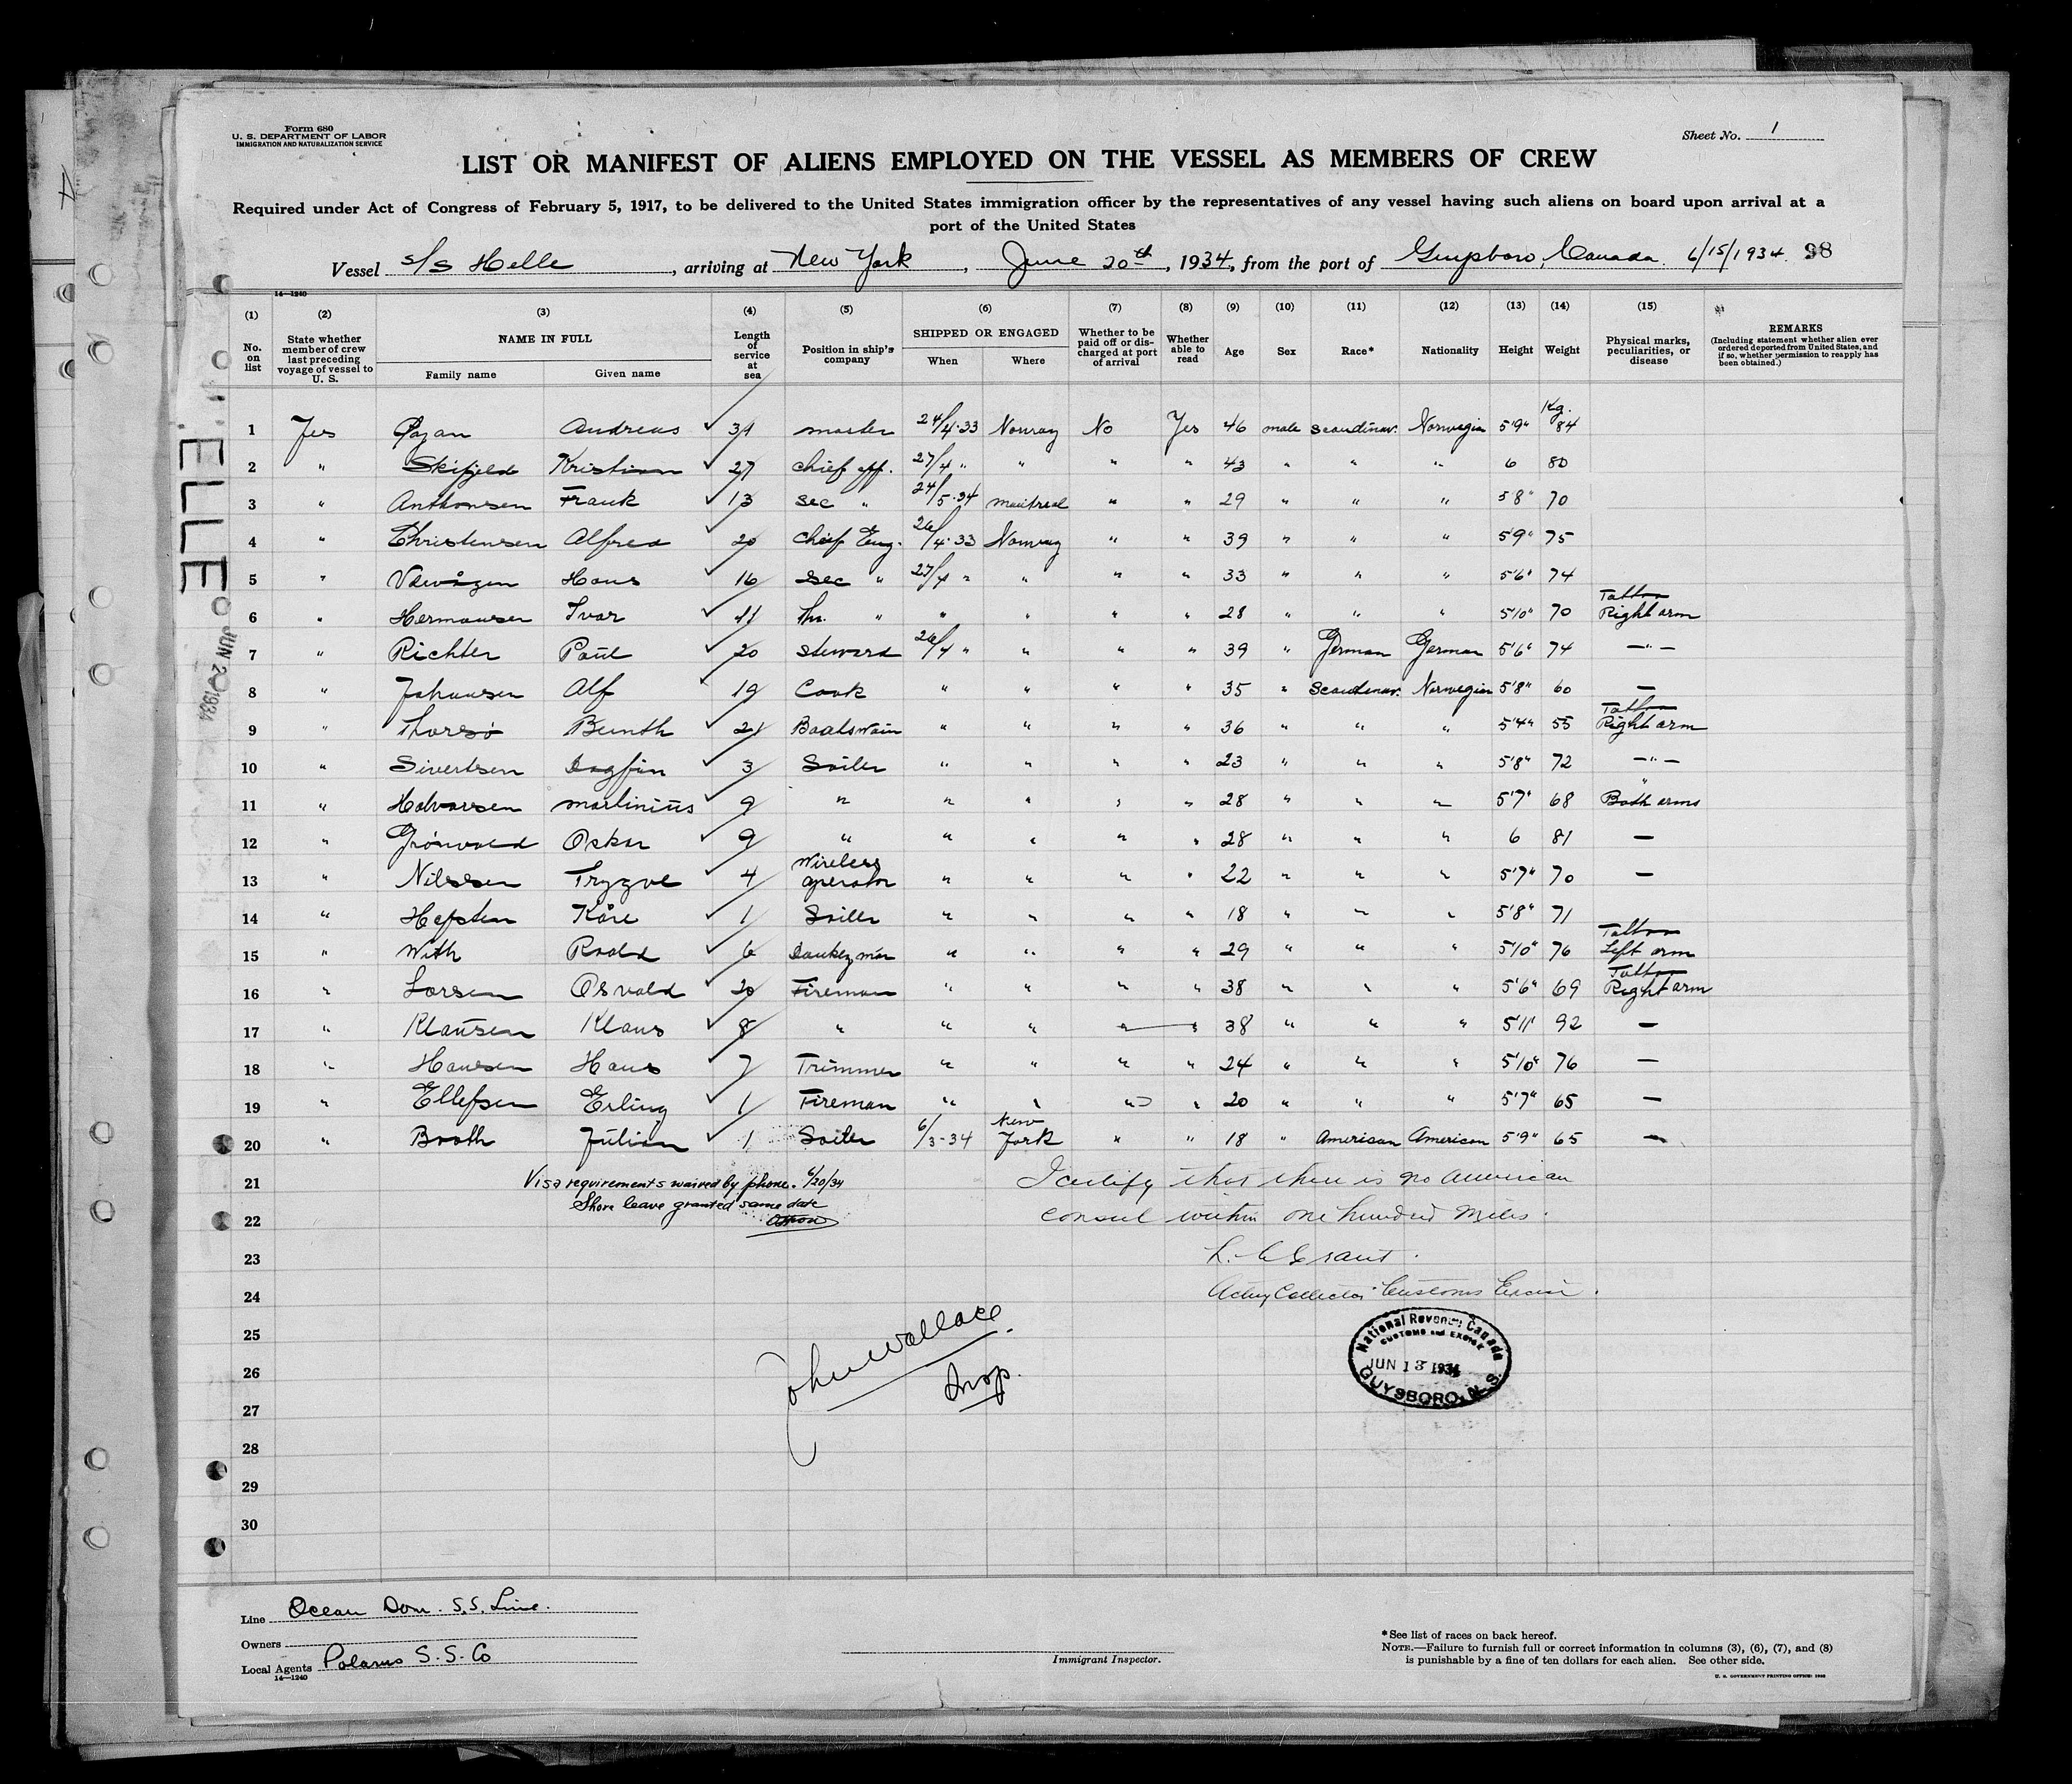 Form 680
U. S. DEPARTMENT OF LABOR
IMMIGRATION AND NATURALIZATION SERVICE
Sheet No. 1
LIST OR MANIFEST OF ALIENS EMPLOYED ON THE VESSEL AS MEMBERS OF CREW
Required under Act of Congress of February 5, 1917, to be delivered to the United States immigration officer by the representatives of any vessel having such aliens on board upon arrival at a
port of the United States
Vessel S/S Helle, arriving at New York, June 20th, 1934, from the port of Guysboro, Canada. 6/15/1934. 98
14—1240
(1) No. on list
(2) State whether member of crew last preceding voyage of vessel to U. S.
(3) NAME IN FULL Family name Given name
(4) Length of service at sea
(5) Position in ship's company
(6) SHIPPED OR ENGAGED When Where
(7) Whether to be paid off or discharged at port of arrival
(8) Whether able to read
(9) Age
(10) Sex
(11) Race*
(12) Nationality
(13) Height
(14) Weight
(15) Physical marks, peculiarities, or disease
REMARKS (Including statement whether alien ever ordered deported from United States, and if so, whether permission to reapply has been obtained.)
Kg.
1 Yes Andreas ✓ 31 master 24/4-33 Norway No Yes 46 male Scandinav. Norwegian 5'9" 84
2 " Skifjeld Kristian ✓ 27 chief off. 27/4 " " " " 43 " " " 6 80
3 " Anthonsen Frank ✓ 13 sec " 24/5-34 Montreal " " 29 " " " 5'8" 70
4 " Christensen Alfred ✓ 20 Chief Eng. 26/4-33 Norway " " 39 " " " 5'9" 75
5 " Hans ✓ 16 Sec " 27/4 " " " " 33 " " " 5'6" 74
6 " Hermansen Ivar ✓ 11 " " " " " 28 " " " 5'10" 70 Tattoo Right arm
7 " Richter Paul ✓ 20 steward 26/4 " " " " 39 " German German 5'6" 74 — " —
8 " Johansen Alf ✓ 19 Cook " " " " 35 " Scandinav. Norwegian 5'8" 60 —
9 " Thorsø Bernth ✓ 21 Boatswain " " " " 36 " " " 5'4" 55 Tattoo Right arm
10 " Sivertsen Dagfin ✓ 3 Sailer " " " " 23 " " " 5'8" 72 — " —
11 " Halvorsen Martinius ✓ 9 " " " " " 28 " " " 5'7" 68 " Both arms
12 " Grönvold Oskar ✓ 9 " " " " " 28 " " " 6 81 —
13 " Nilssen Trygve ✓ 4 Wireless operator " " " " 22 " " " 5'7" 70 —
14 " Kåre ✓ 1 Sailer " " " " 18 " " " 5'8" 71
15 " With Roald ✓ 6 Donkeyman " " " " 29 " " " 5'10" 76 Tattoo Left arm
16 " Larsen Osvald ✓ 20 Fireman " " " " 38 " " " 5'6" 69 Tattoo Right arm
17 " Klausen Klaus ✓ 8 " " " " " 38 " " " 5'11" 92 —
18 " Hansen Hans ✓ 7 Trimmer " " " " 24 " " " 5'10" 76 —
19 " Ellefsen Erling ✓ 1 Fireman " " " " 20 " " " 5'7" 65 —
20 " Booth Julian ✓ 1 Sailer 6/3-34 New York " " 18 " American American 5'9" 65 —
21 Visa requirements waived by phone. 6/20/34 I certify that there is no American
22 Shore leave granted same date consul within one hundred miles.
23 Grant.
24 Acting Collector Customs Excise.
25
26
27
28
29
30
John Wallace
Insp.
National Revenue Canada
CUSTOMS and EXCISE
JUN 13 1934
GUYSBORO, N.S.
ELLE
JUN 20 1934
Line Ocean Dom. S.S. Line.
Owners
Local Agents Polarus S.S. Co
14—1240
Immigrant Inspector.
*See list of races on back hereof.
NOTE.—Failure to furnish full or correct information in columns (3), (6), (7), and (8)
is punishable by a fine of ten dollars for each alien. See other side.
U. S. GOVERNMENT PRINTING OFFICE